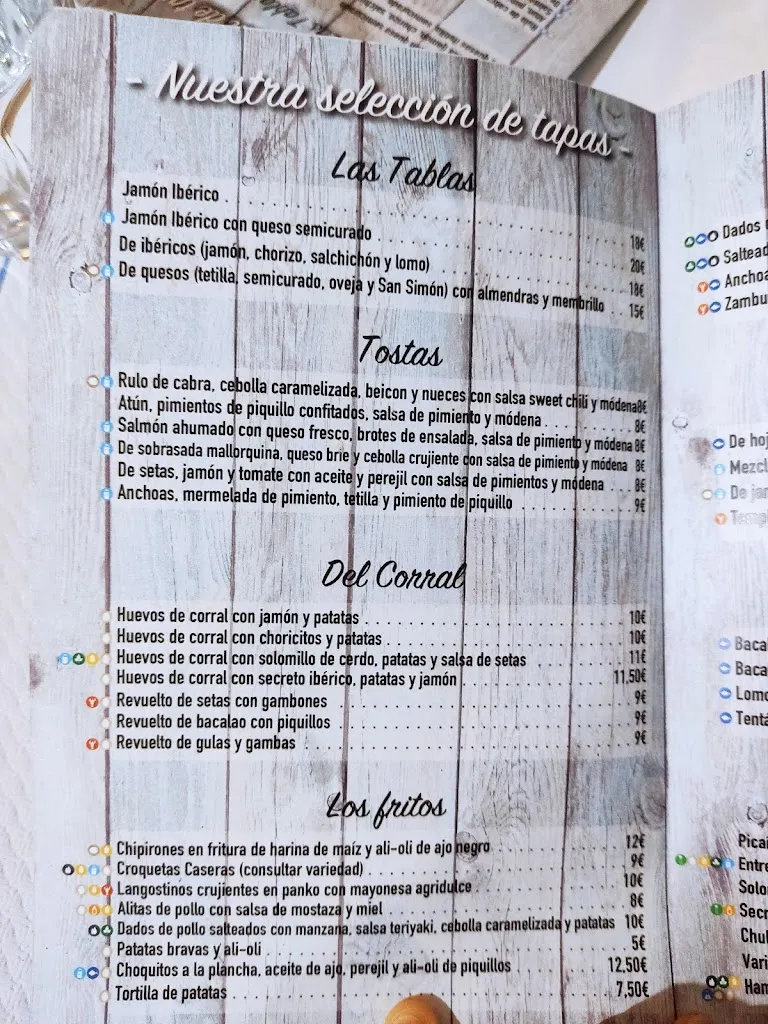 - Nuestra selección de tapas -
Las Tablas
Jamón Ibérico . . . 18€
Jamón Ibérico con queso semicurado . . . 20€
De ibéricos (jamón, chorizo, salchichón y lomo) . . . 18€
De quesos (tetilla, semicurado, oveja y San Simón) con almendras y membrillo . . 15€
Tostas
Rulo de cabra, cebolla caramelizada, beicon y nueces con salsa sweet chili y módena 8€
Atún, pimientos de piquillo confitados, salsa de pimiento y módena . . . 8€
Salmón ahumado con queso fresco, brotes de ensalada, salsa de pimiento y módena 8€
De sobrasada mallorquina, queso brie y cebolla crujiente con salsa de pimiento y módena 8€
De setas, jamón y tomate con aceite y perejil con salsa de pimientos y módena . . . 8€
Anchoas, mermelada de pimiento, tetilla y pimiento de piquillo . . . 9€
Del Corral
Huevos de corral con jamón y patatas . . . 10€
Huevos de corral con choricitos y patatas . . . 10€
Huevos de corral con solomillo de cerdo, patatas y salsa de setas . . . 11€
Huevos de corral con secreto ibérico, patatas y jamón . . . 11,50€
Revuelto de setas con gambones . . . 9€
Revuelto de bacalao con piquillos . . . 9€
Revuelto de gulas y gambas . . . 9€
Los fritos
Chipirones en fritura de harina de maíz y ali-oli de ajo negro . . . 12€
Croquetas Caseras (consultar variedad) . . . 9€
Langostinos crujientes en panko con mayonesa agridulce . . . 10€
Alitas de pollo con salsa de mostaza y miel . . . 8€
Dados de pollo salteados con manzana, salsa teriyaki, cebolla caramelizada y patatas 10€
Patatas bravas y ali-oli . . . 5€
Choquitos a la plancha, aceite de ajo, perejil y ali-oli de piquillos . . . 12,50€
Tortilla de patatas . . . 7,50€
Dados
Saltead
Anchoa
Zambu
De hoj
Mezcl
De jam
Baca
Baca
Lomo
Tentá
Pica
Entre
Solo
Secr
Chul
Vari
Ham